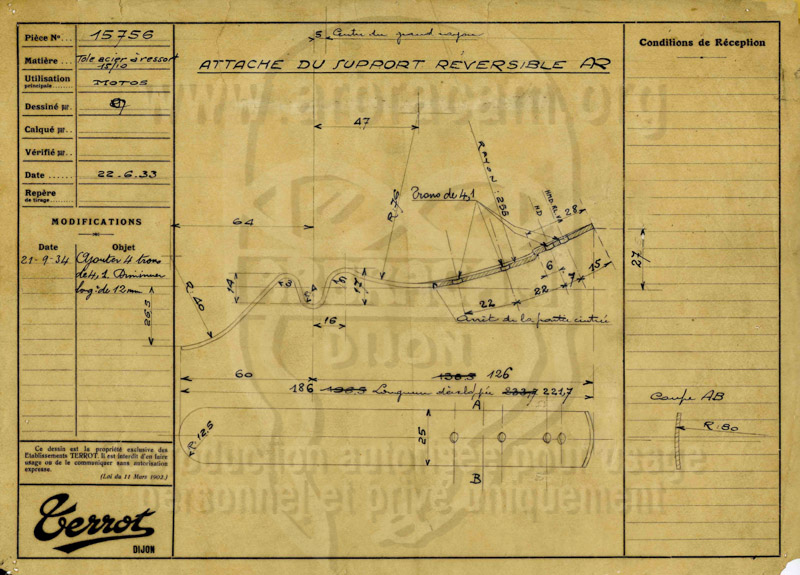 Pièce No... 15756
Matière... Tôle acier à ressort
15/10
Utilisation
principale........ MOTOS
Dessiné par..
Calqué par..
Vérifié par..
Date ...... 22.6.33
Repère
de tirage........
MODIFICATIONS
Date Objet
21-9-34 Ajouter 4 trous
de 4,1. Diminuer
long.r de 12mm
Ce dessin est la propriété exclusive des
Etablissements TERROT. Il est interdit d'en faire
usage ou de le communiquer sans autorisation
expresse.
(Loi du 11 Mars 1902.)
Terrot
DIJON
5 Centre du grand rayon
ATTACHE DU SUPPORT RÉVERSIBLE AR
www.arbracam.org
47
RAYON : 255
R. 76
Trous de 4,1
HD
HMD
28
64
27
R. 40
26,5
14
3
4
3
6
17
16
6
7
15
22
22
Arrêt de la partie cintrée
DIJON
60
138,5 126
186 198,5 Longueur développée 233,7 221,7
A
R. 12,5
25
B
personnel et privé uniquement
Conditions de Réception
Coupe AB
R. 80